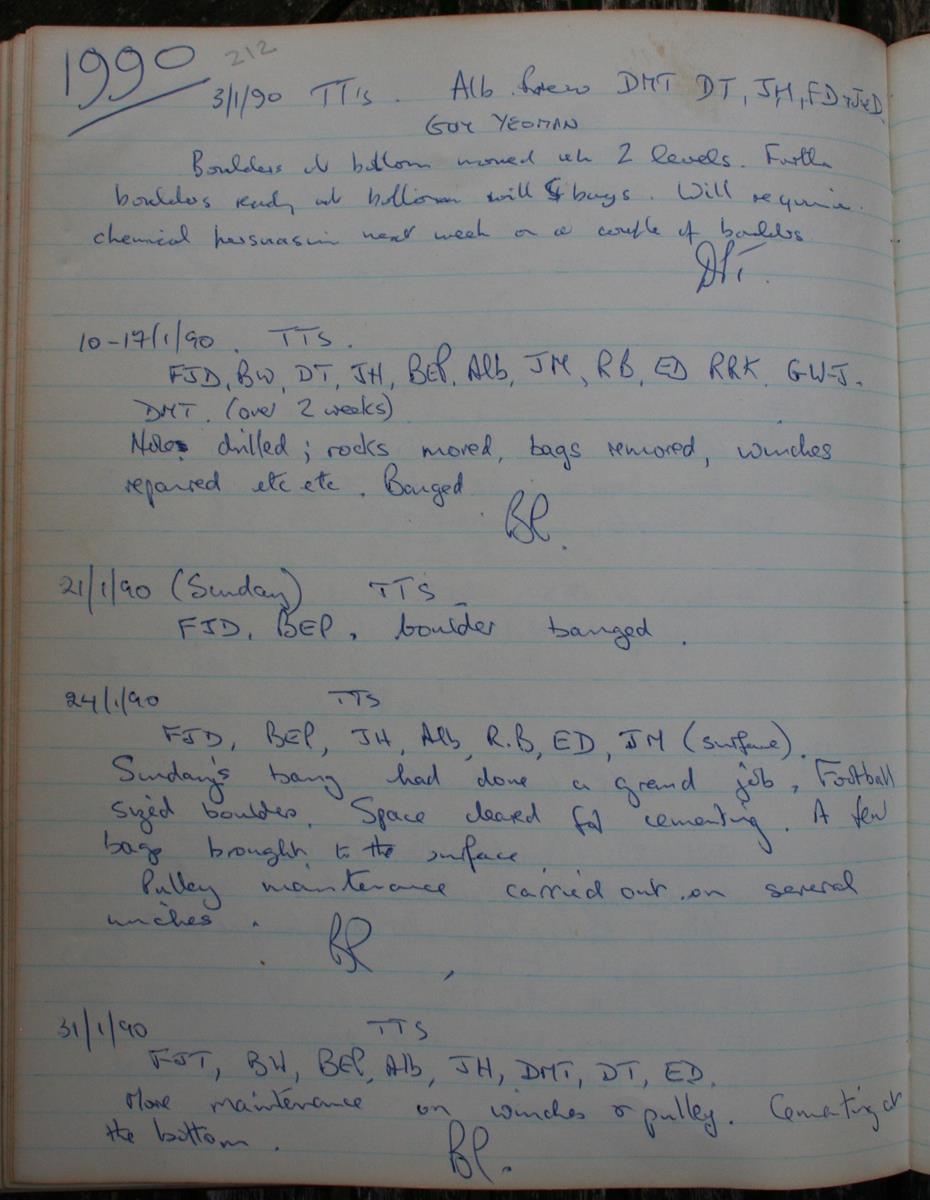 1990 212
3/1/90 TT's. Alb DMT DT, JH, FD
GUY YEOMAN
Boulders at bottom moved 2 levels. Further
boulders ready at bottom will bags. Will require
chemical persuasion next week on a couple of boulders
DT.
10-17/1/90. TTS.
FJD, BW, DT, JH, BEP, Alb, JM, RB, ED RRK. GW-J.
DMT. (over 2 weeks)
Holes drilled; rocks moved, bags removed, winches
repaired etc etc. Banged
BP.
21/1/90 (Sunday) TTS
FJD, BEP, boulder banged.
24/1/90 TTS
FJD, BEP, JH, Alb, R.B, ED, JM (surface).
Sunday's bang had done a grand job, Football
sized boulders. Space cleared for cementing. A few
bags brought to the surface
Pulley maintenance carried out on several
winches.
BP
31/1/90 TTS
FJT, BW, BEP, Alb, JH, DMT, DT, ED.
More maintenance on winches & pulley. Cementing at
the bottom.
BP.